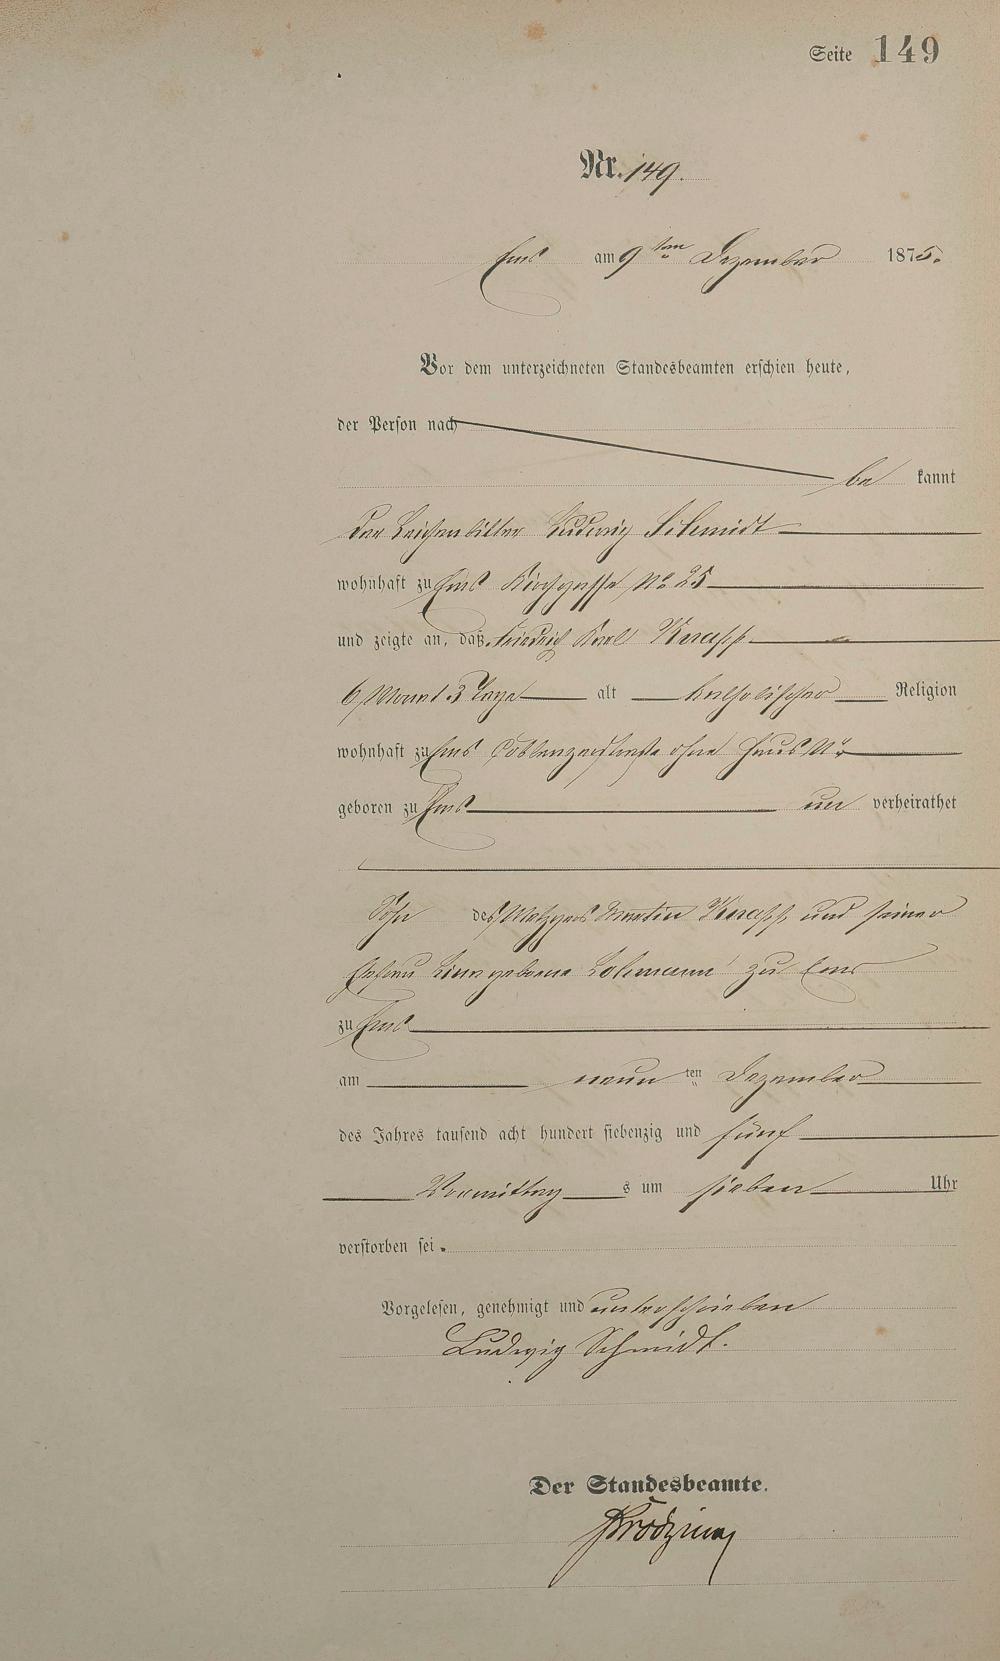 Seite 149
Nr. 149.
Ems am 9ten Dezember 1875.
Vor dem unterzeichneten Standesbeamten erschien heute,
der Person nach
be kannt
der Leichenbitter Ludwig Schmidt
wohnhaft zu Ems Kirchgasse No 25
und zeigte an, daß Friedrich Karl Knapp
6 Monat 3 Tage alt katholischer Religion
wohnhaft zu Ems Coblenzerstraße ohne Haus No
geboren zu Ems un verheirathet
Sohn des Metzgers Martin Knapp und seiner
Ehefrau geborene zu Ems
zu Ems
am neun ten Dezember
des Jahres tausend acht hundert siebenzig und fünf
Vormittag s um sieben Uhr
verstorben sei.
Vorgelesen, genehmigt und unterschrieben
Ludwig Schmidt.
Der Standesbeamte.